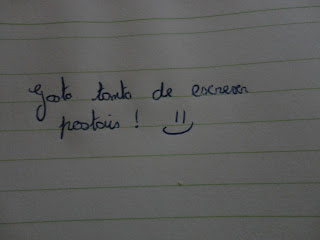 Gosto tanto de escrever
postais! =)